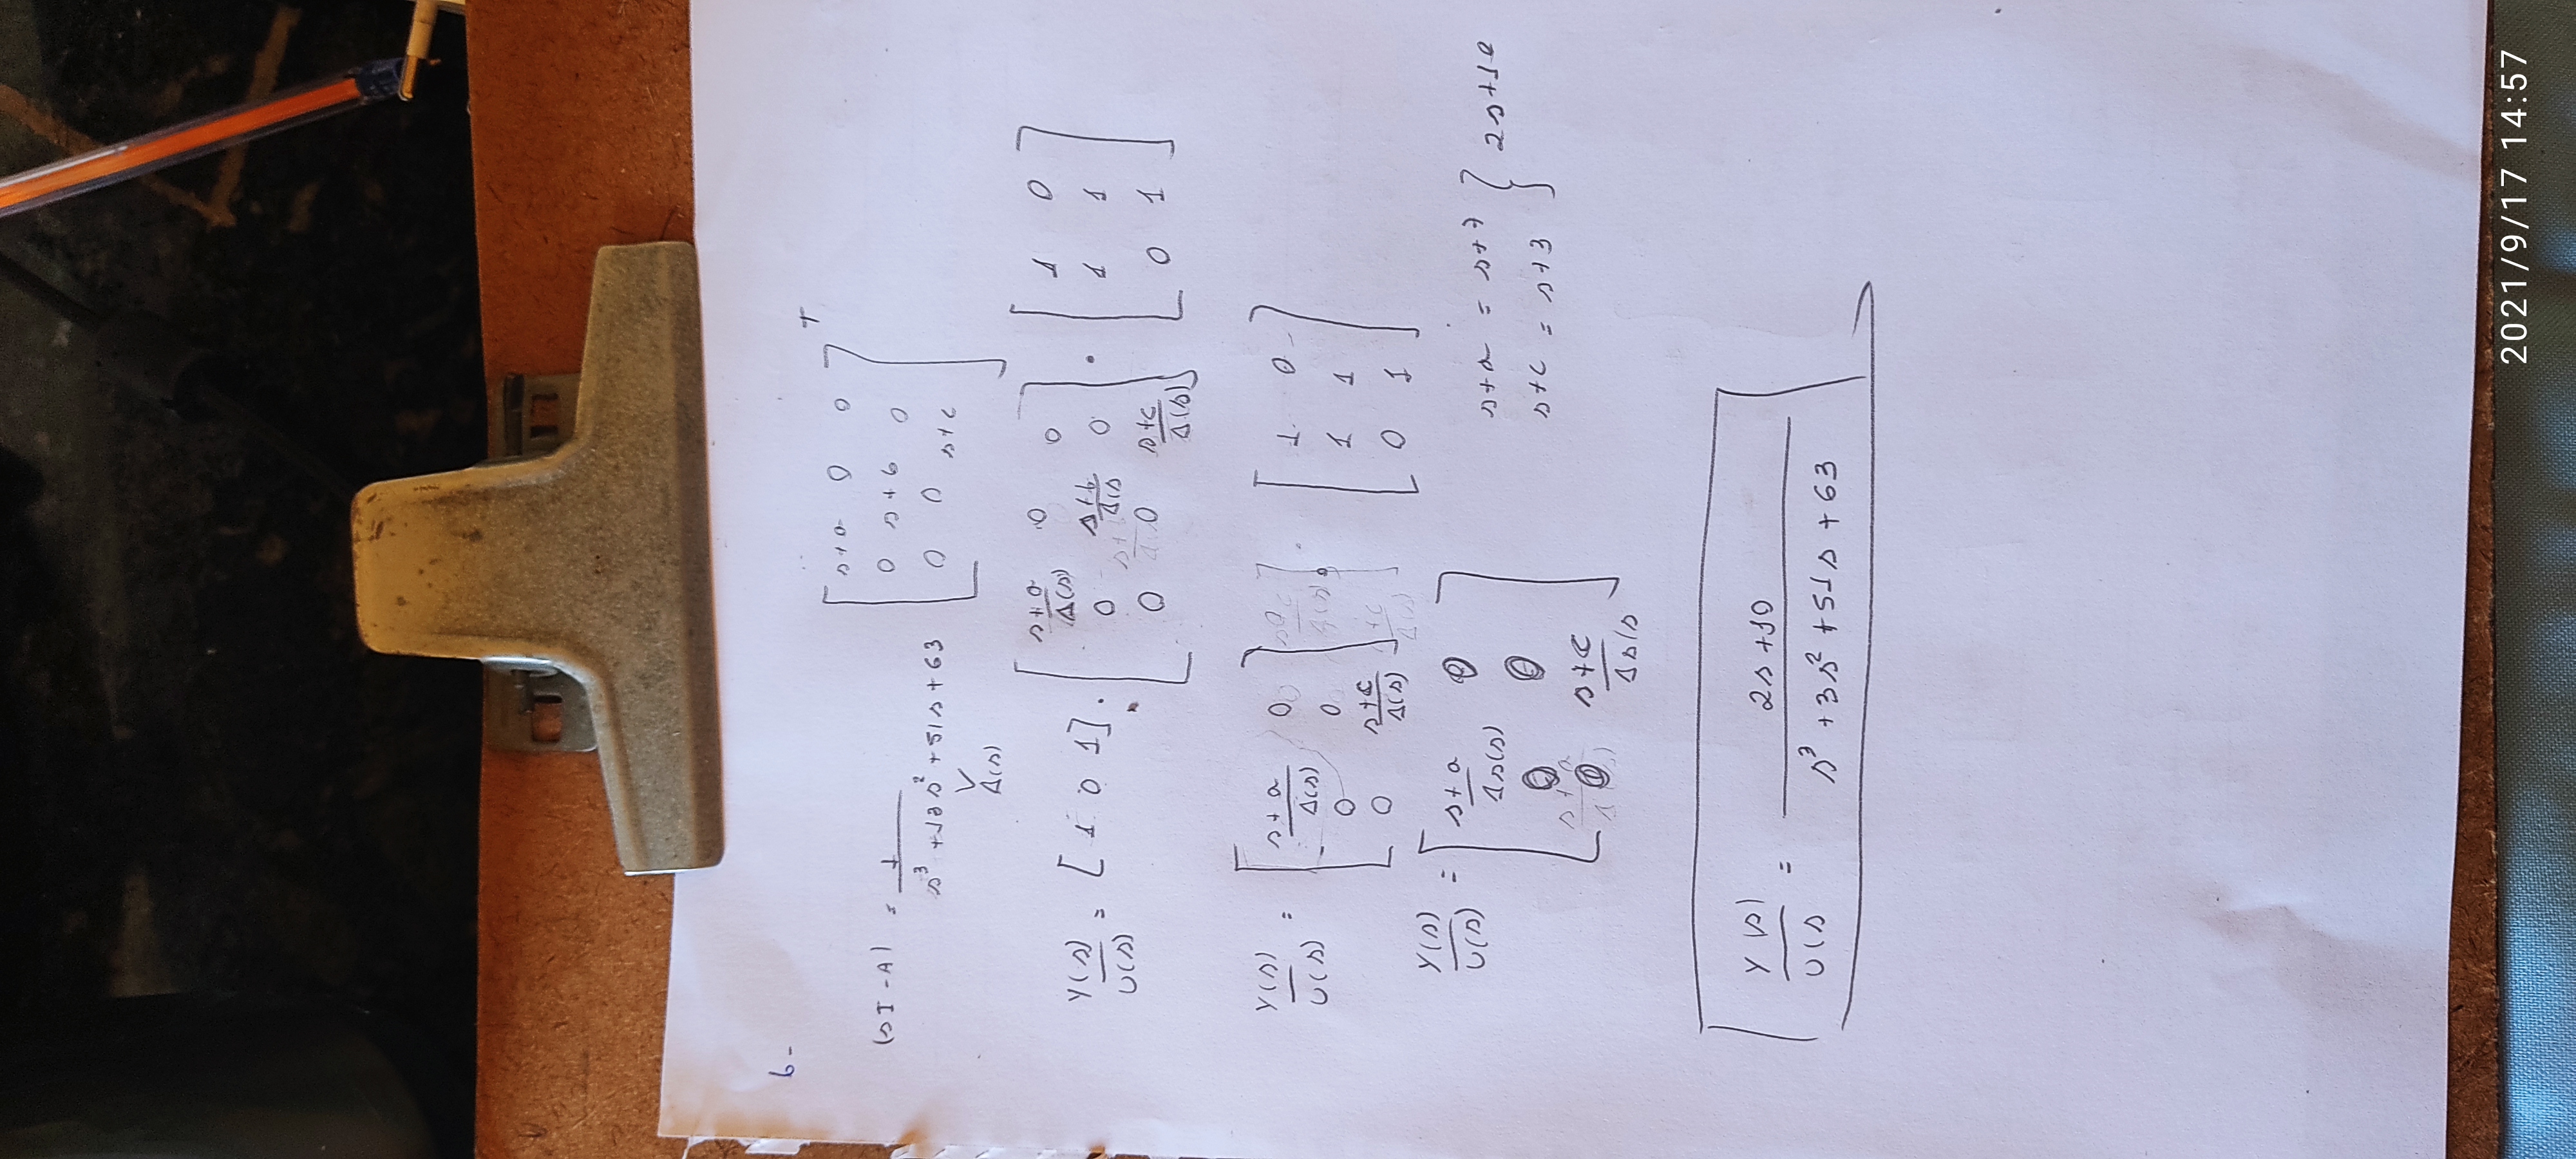 6-
(sI-A) = 1 / s³ + 13s² + 51s + 63 [ s+a 0 0 ] T
[ 0 s+b 0 ]
[ 0 0 s+c ]
Δ(s)
Y(s) / U(s) = [1 0 1] . [ s+a/Δ(s) 0 0 ] . [ 1 0 ]
[ 0 s+b/Δ(s 0 ] [ 1 1 ]
[ 0 0 s+c/Δ(s) ] [ 0 1 ]
Y(s) / U(s) = [ s+a/Δ(s) 0 ] . [ 1 0 ]
[ 0 0 ] [ 1 1 ]
[ 0 s+c/Δ(s) ] [ 0 1 ]
Y(s) / U(s) = [ s+a/Δs(s) 0 ]
[ 0 0 ]
[ 0 s+c/Δs(s ]
s+a = s+7 } 2s+10
s+c = s+3
Y(s) / U(s = 2s+10 / s³ + 3s² + 51s + 63
2021/9/17 14:57